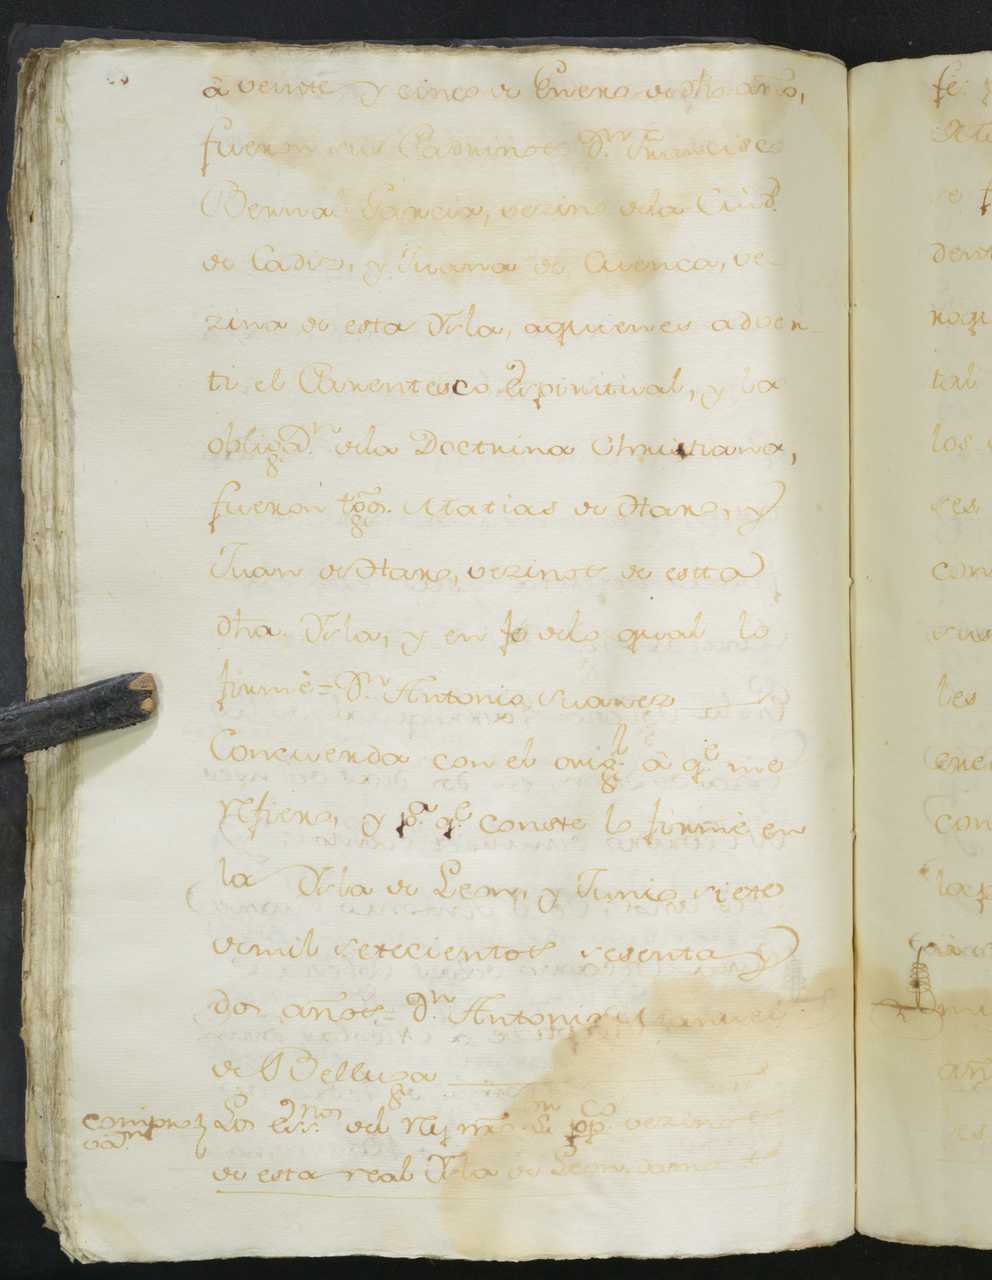 à veinte y cinco de Enero de dho año,
fueron sus Padrinos Dn. Francisco
Bernal Garcia, vezino dela Ciud.
de Cadiz, y Juana de Cuenca, ve-
zina de esta Vila, aquienes adver-
ti el Parentesco Espiritual, y la
obligan. dela Doctrina Christiana,
fueron tgõs. Matias de Haro, y
Juan de Haro, vezinos de estta
dha Vila, y en fe delo qual lo
firmè = Dn. Antonio Suarez
Concuerda con el origl. à qe. me
refiero, y pa. qe. conste lo firmè en
la Vila de Leon, y Junio siete
demil setecientos sesenta y
dos años = Dn. Antonio Manuel
de Belluga
comproz
van.
Los essnos. del Rey nro. Sr. ppcos vezinos
de esta real Vila de Leon damos